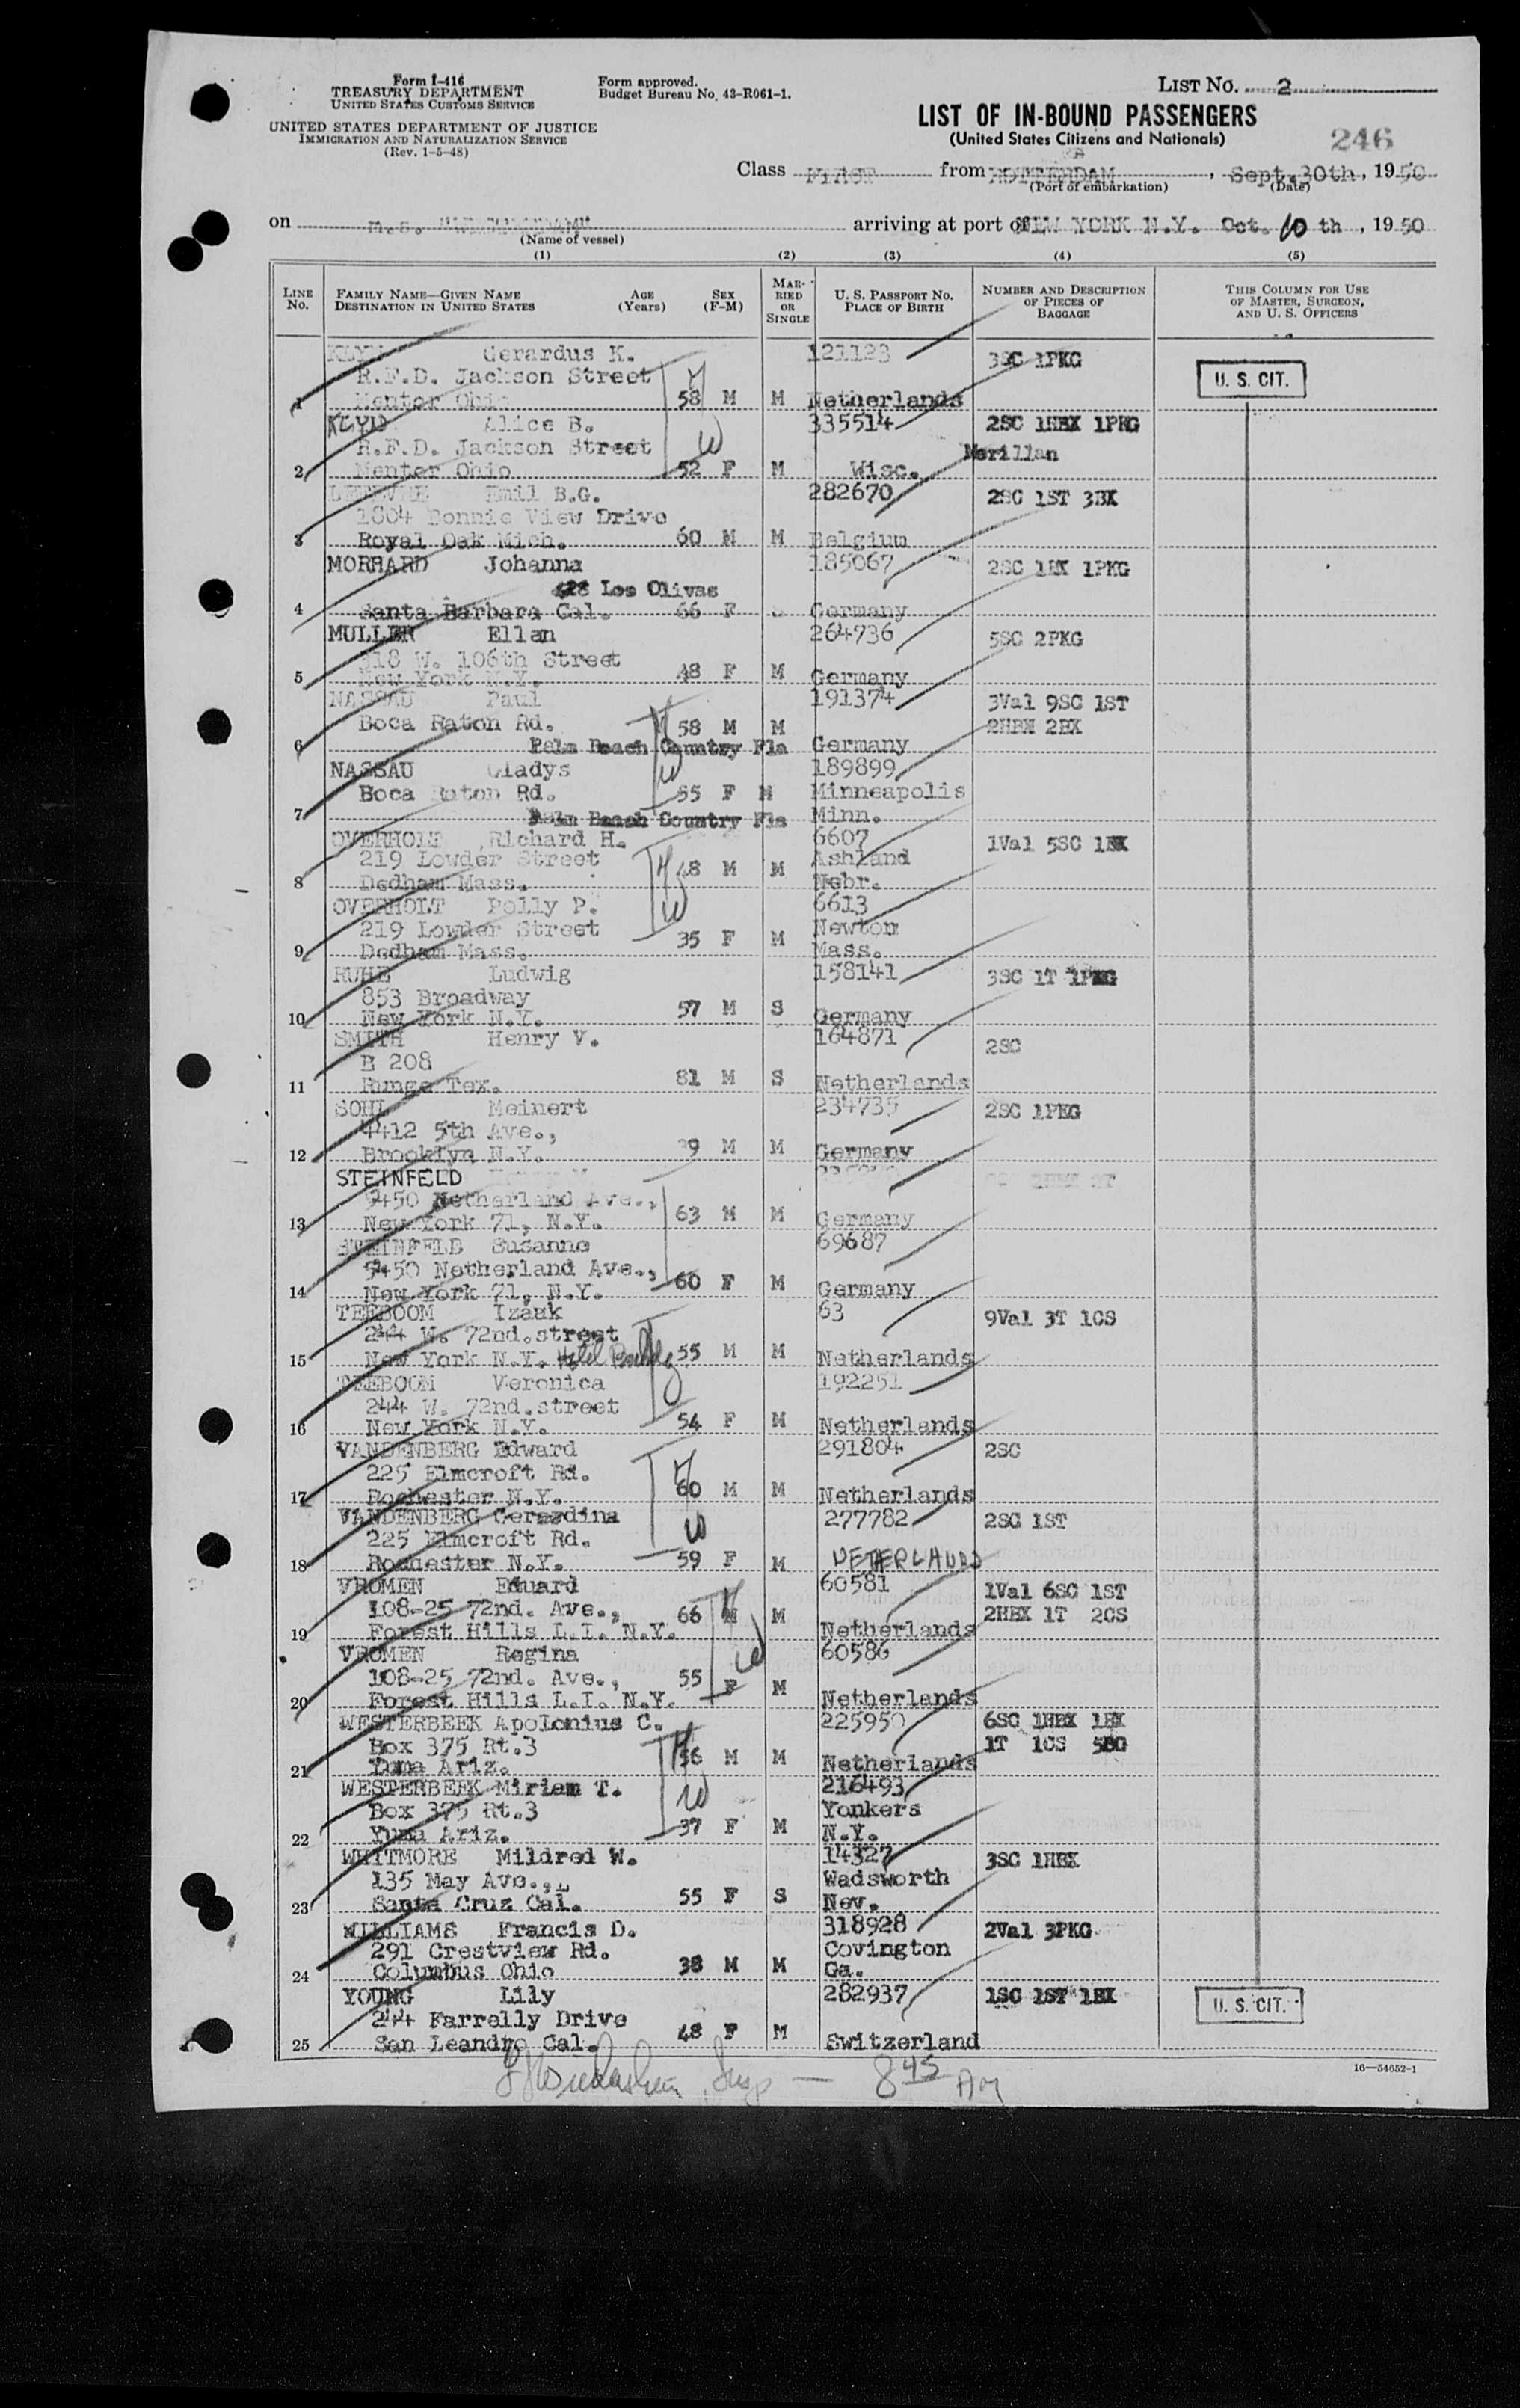 Form I-416
TREASURY DEPARTMENT
UNITED STATES CUSTOMS SERVICE
UNITED STATES DEPARTMENT OF JUSTICE
IMMIGRATION AND NATURALIZATION SERVICE
(Rev. 1-5-48)
Form approved.
Budget Bureau No. 43-R061-1.
LIST No. 2
LIST OF IN-BOUND PASSENGERS
(United States Citizens and Nationals)
246
Class FIRST from ROTTERDAM, Sept.30th, 1950
(Port of embarkation) (Date)
on m.s. arriving at port of NEW YORK N.Y. Oct. 10 th, 1950
(Name of vessel)
(1) (2) (3) (4) (5)
LINE No. FAMILY NAME—GIVEN NAME DESTINATION IN UNITED STATES AGE (Years) SEX (F-M) MARRIED OR SINGLE U. S. PASSPORT No. PLACE OF BIRTH NUMBER AND DESCRIPTION OF PIECES OF BAGGAGE THIS COLUMN FOR USE OF MASTER, SURGEON, AND U. S. OFFICERS
Gerardus K. 121123 3SC 1PKG
R.F.D. Jackson Street U. S. CIT.
1 Mentor Ohio 58 M M Netherlands
KLYN Alice B. 335514 2SC 1HBX 1PKG
R.F.D. Jackson Street Merillan
2 Mentor Ohio 52 F M Wisc.
Emil B.G. 282670 2SC 1ST 3BX
1804 Bonnie View Drive
3 Royal Oak Mich. 60 M M Belgium
MORHARD Johanna 185067 2SC 1BX 1PKG
428 Los Olivas
4 Santa Barbara Cal. 66 F S Germany
MULLER Ellen 264736 5SC 2PKG
318 W. 106th Street
5 New York N.Y. 48 F M Germany
NASSAU Paul 191374 3Val 9SC 1ST
Boca Raton Rd. 58 M M 2HBX 2BX
6 Palm Beach Country Fla Germany
NASSAU Gladys 189899
Boca Raton Rd. 55 F M Minneapolis
7 Palm Beach Country Fla Minn.
OVERHOLT Richard H. 6607 1Val 5SC 1BX
219 Lowder Street Ashland
8 Dedham Mass. 48 M M Nebr.
OVERHOLT Polly P. 6613
219 Lowder Street Newton
9 Dedham Mass. 35 F M Mass.
RUHE Ludwig 158141 3SC 1T 1PKG
853 Broadway
10 New York N.Y. 57 M S Germany
SMITH Henry V. 164871 2SC
B 208
11 Runge Tex. 81 M S Netherlands
SOHL Meinert 234735 2SC 1PKG
4412 5th Ave.,
12 Brooklyn N.Y. 39 M M Germany
STEINFELD
5450 Netherland Ave.,
13 New York 71, N.Y. 63 M M Germany
STEINFELD Susanne 69687
5450 Netherland Ave.,
14 New York 71, N.Y. 60 F M Germany
TEEBOOM Izaak 63 9Val 3T 1CS
244 W. 72nd.street
15 New York N.Y. Hotel 55 M M Netherlands
TEEBOOM Veronica 192251
244 W. 72nd.street
16 New York N.Y. 54 F M Netherlands
VANDENBERG Edward 291804 2SC
225 Elmcroft Rd.
17 Rochester N.Y. 60 M M Netherlands
VANDENBERG Gerardina 277782 2SC 1ST
225 Elmcroft Rd.
18 Rochester N.Y. 59 F M NETERLANDS
VROMEN Eduard 60581 1Val 6SC 1ST
108-25 72nd. Ave., 66 M M 2HBX 1T 2CS
19 Forest Hills L.I. N.Y. Netherlands
VROMEN Regina 60586
108-25 72nd. Ave., 55 F M
20 Forest Hills L.I. N.Y. Netherlands
WESTERBEEK Apolonius C. 225950 6SC 1HBX 1BX
Box 375 Rt.3 1T 1CS 5BG
21 Yuma Ariz. 56 M M Netherlands
WESTERBEEK Miriam T. 216493
Box 375 Rt.3 Yonkers
22 Yuma Ariz. 37 F M N.Y.
WHITMORE Mildred W. 14327 3SC 1HBX
135 May Ave., Wadsworth
23 Santa Cruz Cal. 55 F S Nev.
WILLIAMS Francis D. 318928 2Val 3PKG
291 Crestview Rd. Covington
24 Columbus Ohio 38 M M Ga.
YOUNG Lily 282937 1SC 1ST 1BX
244 Farrelly Drive U. S. CIT.
25 San Leandro Cal. 48 F M Switzerland
Insp — 8 45 AM
16—54652-1